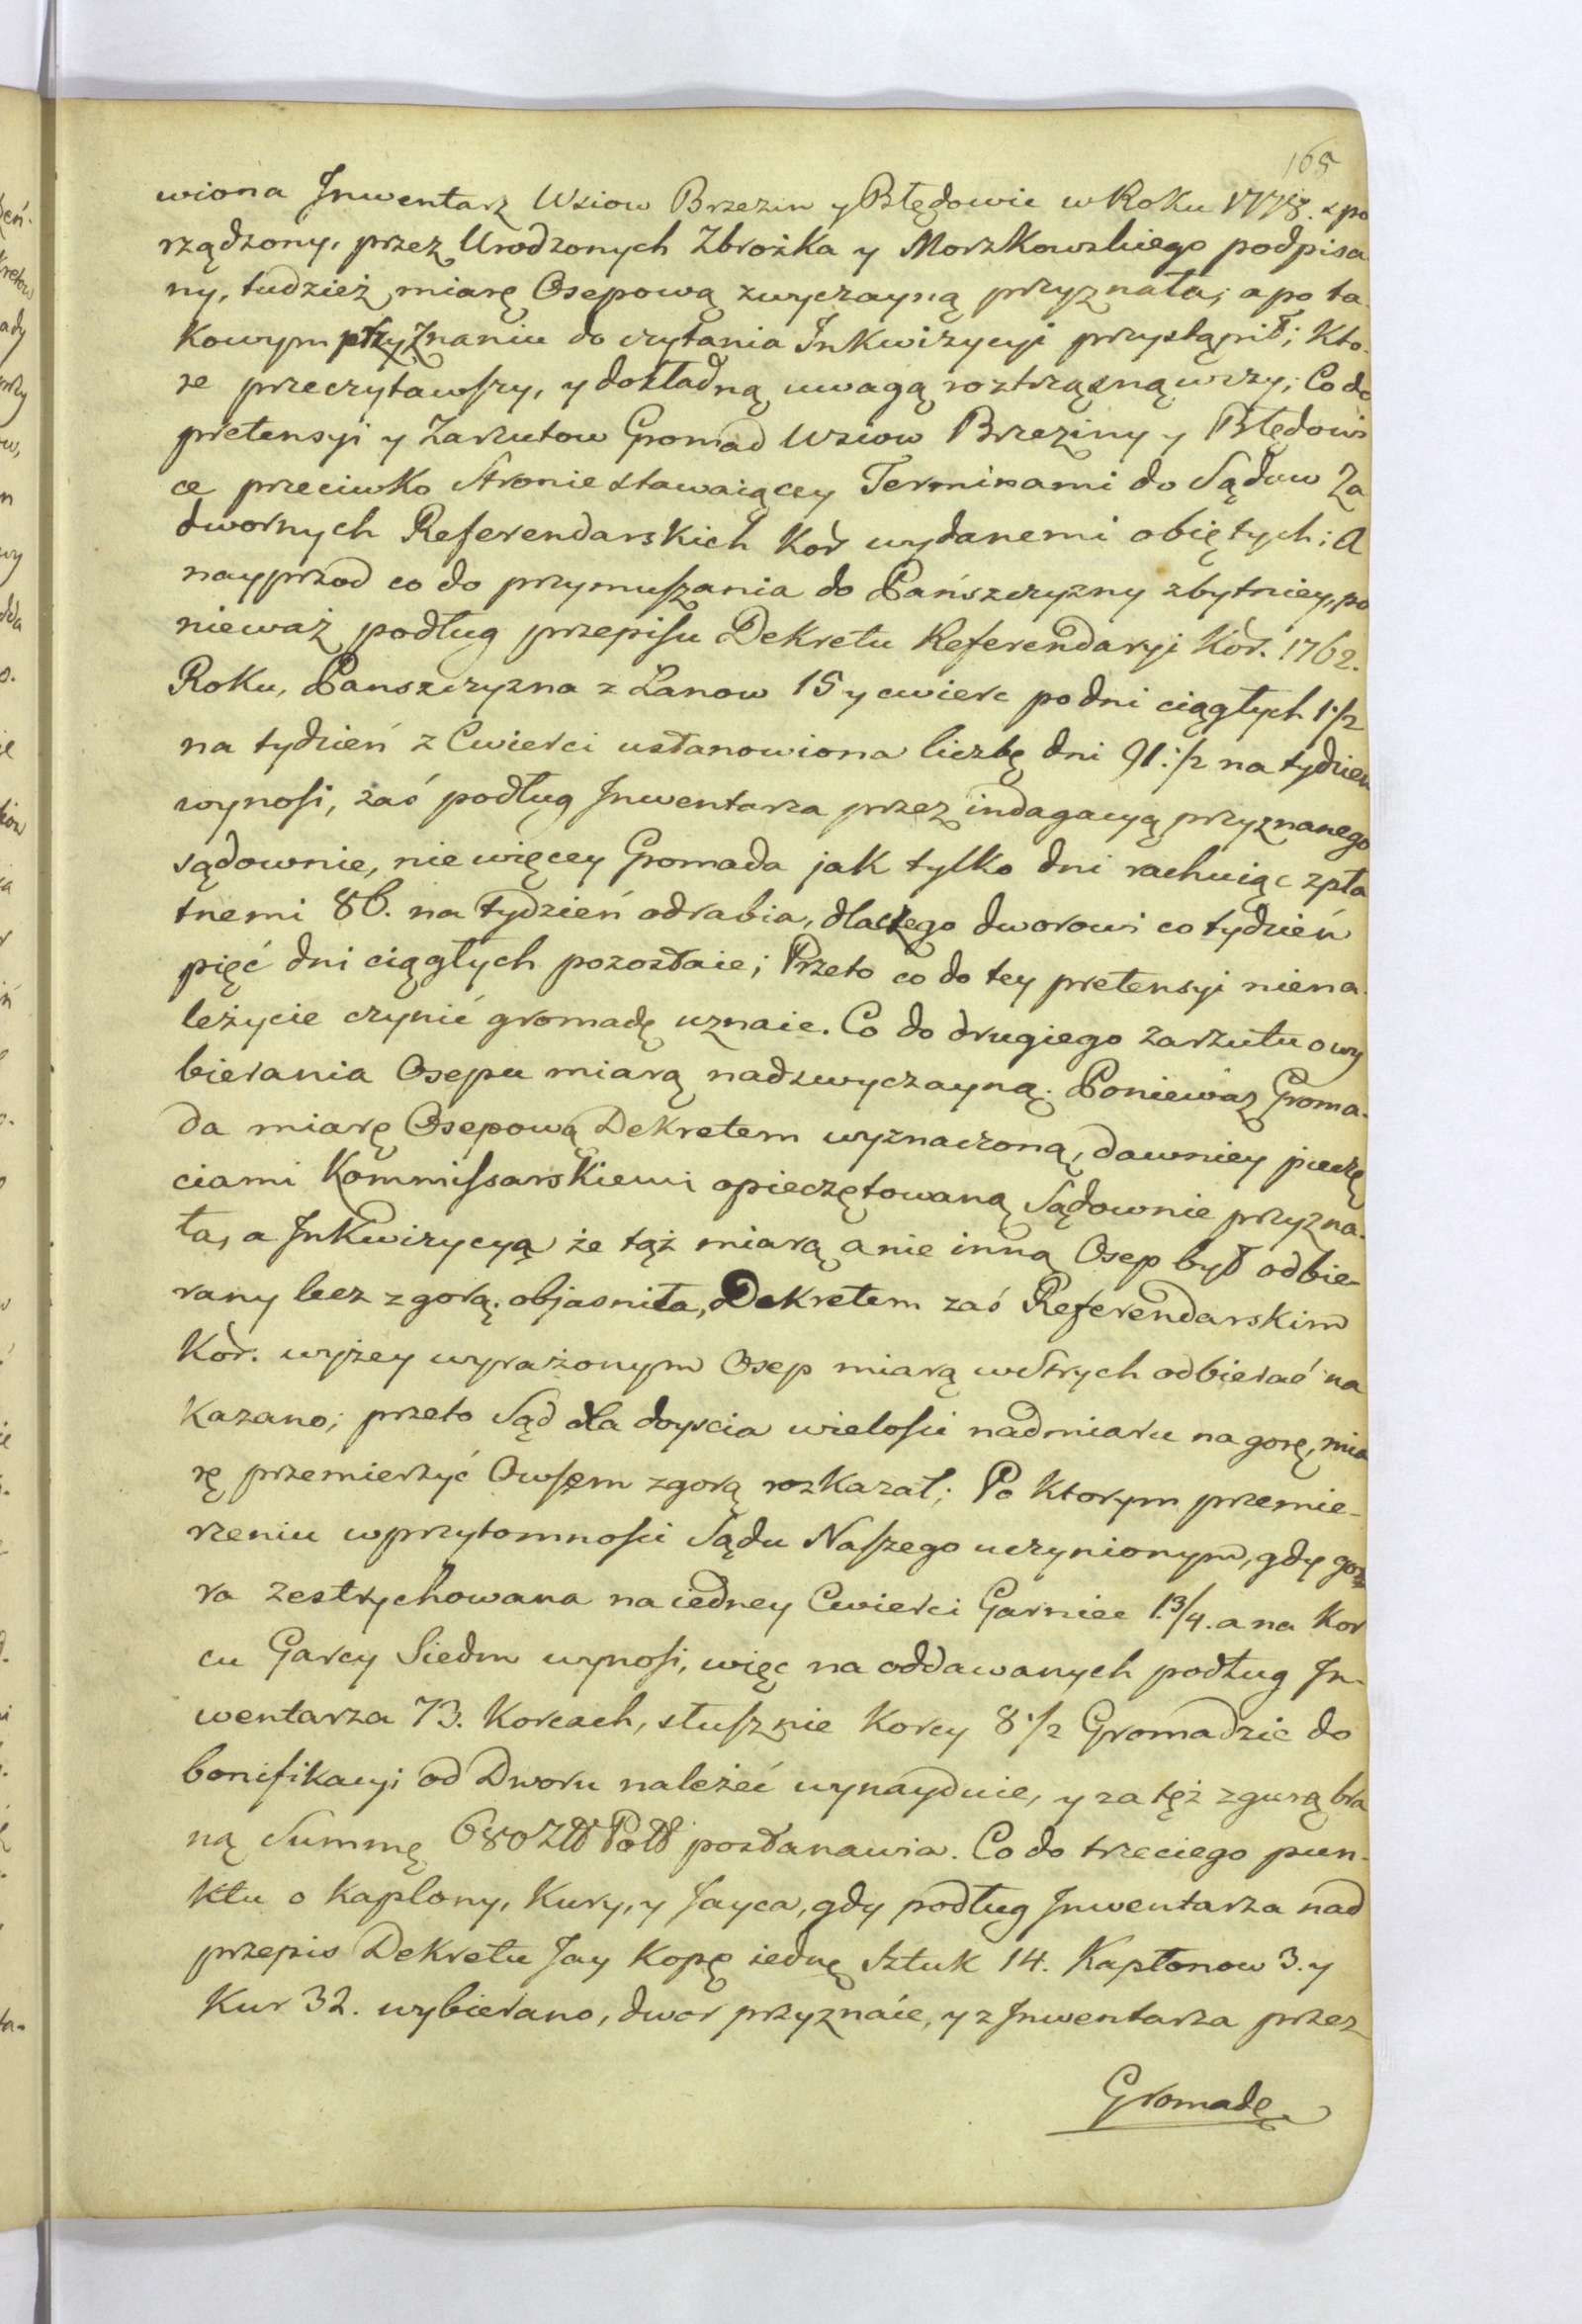 165
wiona Jnwentarz Wsiow Brzezin y Błędowie w Roku 1778. zpo
rządzony, przez Urodzonych Zbrożka y Morzkowskiego podpisa
ny, tudzież miarę Osepową zwyczayną przyznała; a po ta-
kowym przyznaniu do czytania Inkwizycyi przystąpił; Kto-
re przeczytawszy, y dokładną uwagą roztrząsnąwszy; Co do
pretensyi y Zarzutow Gromad Wsiow Brzeziny y Błędowi
ce przeciwko Stronie stawaiącey Terminami do Sądow Za
dwornych Referendarskich Kor wydanemi obiętych; A
nayprzod co do przymuszania do Pańszczyzny zbytniey, po
nieważ podług przepisu Dekretu Referendaryi Kor. 1762.
Roku, Panszczyzna z Łanow 15 y cwierc po dni ciągłych 1 1/2
na tydzień z Cwierci ustanowiona liczbę dni 91. 1/2 na tydzien
wynosi, zaś podług Jnwentarza przez indagacyą przyznanego
sądownie, niewięcey Gromada jak tylko dni rachuiąc z pła
tnemi 86. na tydzień odrabia, dlaczego dworowi co tydzień
pięć dni ciągłych pozostaie; Przeto co do tey pretensyi niena-
leżycie czynić gromadę uznaie. Co do drugiego zarzutu o wy
bierania Osepu miarą nadzwyczayną. Ponieważ Groma-
da miarę Osepową Dekretem wyznaczoną, dawniey pieczę
ciami Kommissarskiemi opieczętowaną Sądownie przyzna-
ła, a Jnkwizycyą że tąż miarą a nie inną Osep był odbie-
rany lecz z gorą objasniła, Dekretem zaś Referendarskim
Kor. wyżey wyrażonym Osep miarą w Strych odbierać na
kazano; przeto Sąd dla doyscia wielości nadmiaru na gorę, mia
rę przemierzyć Owsem z gorą rozkazał; Po ktorym przemie-
rzeniu w przytomności Sądu Naszego uczynionym, gdy go
ra zestrychowana na iedney Cwierci Garniec 1. 3/4. a na Kor
cu Garcy Siedm wynosi, więc na oddawanych podług Jn-
wentarza 73. Korcach, słusznie Korcy 8 1/2 Gromadzie do
bonifikacyi od Dworu należeć wynayduie, y za tęż z gurą bra
ną Summę 680 Złł Poll postanawia. Co do trzeciego pun-
ktu o kapłony, Kury, y Jayca, gdy podług Jnwentarza nad
przepis Dekretu Jay Kopę iednę Sztuk 14. Kapłonow 3. y
Kur 32. wybierano, dwor przyznaie, y z Jnwentarza przez
Gromadę